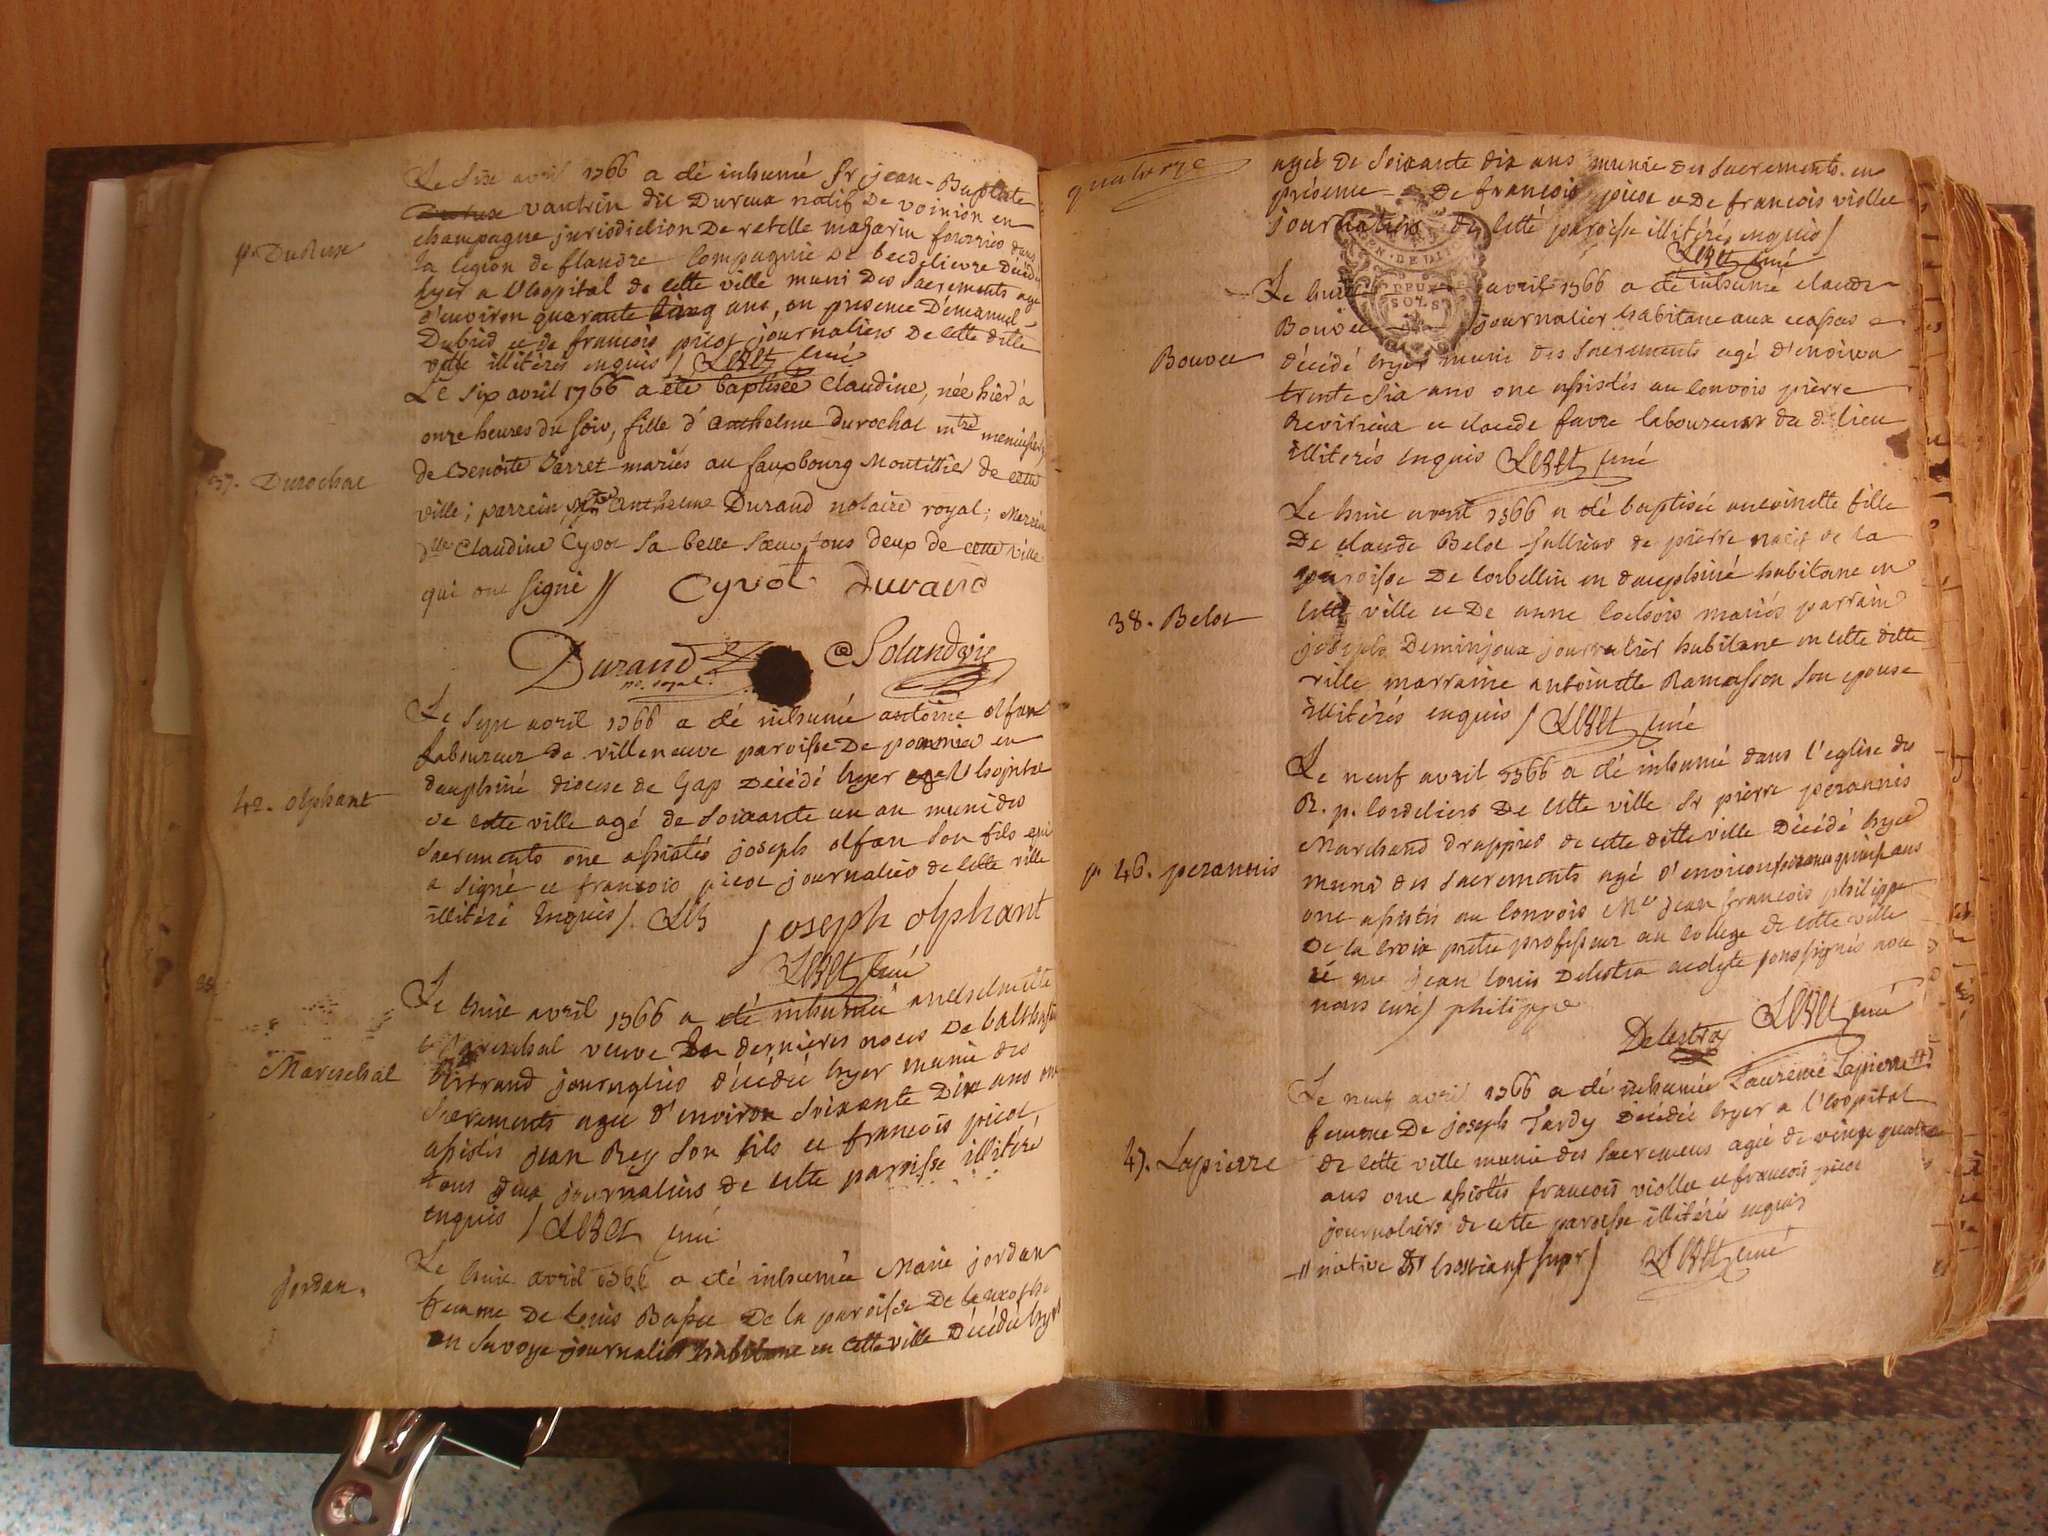 Le six avril 1766 a eté inhumé Sr jean-Baptiste
vautrin dit Dureux natif De voinion en
champagne jurisdiction De retelle mazarin fourrier dans
la legion de flandre Compagnie De becdelievre Decedé
hyer a l'hopital de cette ville muni Des Sacrements agé
d'environ quarante cinq ans, en presence D'emanuel
Dubied et de francois picot journaliers De cette ditte
ville illitérés enquis / curé
p. Dureux
Le six avril 1766 a été baptisée Claudine, née hier à
onze heures du soir, fille d'anthelme Durochat mtre menuisier
de Benoite Varret mariés au fauxbourg Montillié de cette
ville; parrein anthelme Durand notaire royal; Marreine
dlle Claudine Cyvot sa belle soeur, tous deux de cette ville
qui ont signé // Cyvot Durand
37. Durochat
Durand
no. royal.
Le Sept avril 1766 a eté inhumé antoine olfan
Laboureur de villeneuve paroisse De pommier en
dauphiné diocese de Gap Décédé hyer a l'hopital
de cette ville agé de soixante un an muni des
Sacrements ont assistés joseph olfan son fils qui
a signé et francois picot journalier de cette ville
illitéré Enquis /. joseph olphant
curé
42. olphant
Le huit avril 1766 a eté inhumée
Mareschal veuve en dernieres noces De balthasar
Bertrand journaglier décédée hyer munie des
Sacrements agée d'environ Soixante Dix ans ont
assistés jean Rey Son fils et francois picot,
tous deux journaliers de cette paroisse illitéré
enquis / curé
Mareschal
Le huit avril 1766 a eté inhumée Marie jordan
femme De Louis De la paroisse De
en Savoye journalier habitant en cette ville Décédée hyer
Jordan.
quatorze
agée De Soixante dix ans munie des Sacrements en
présence De francois picot et De francois viollet
journaliers de cette paroisse illitérés enquis /
curé
DEUX
SOLS
Le huit avril 1766 a eté inhumé claude
Bouvet journalier habitant aux
décédé hyer muni des Sacrements agé d'environ
trente six ans ont assistés au convois pierre
Revirieux et claude favre laboureurs du d. lieu
illitérés enquis curé
Bouvet
Le huit avril 1766 a eté baptisée antoinette fille
De claude Belot de pierre natif de la
paroisse De Corbellin en dauphiné habitant en
cette ville et De anne mariés parrain
joseph Deminjoux journalier habitant en cette ditte
ville marraine antoinette Ramasson Son epouse
illitérés enquis / curé
38. Belot
Le neuf avril 1766 a eté inhumé dans l'eglise des
R. p. Cordeliers De cette ville Sr pierre perannis
Marchand drappier de cette ditte ville Décédé hyer
muni des Sacrements agé d'environ ans
ont assistés au Convois Mre jean francois philippe
De la Croix pretre professeur au College de cette ville
et me jean Louis Delestra acolyte soussignés avec
nous curé / philippe
Delestra curé
p. 46. perannis
Le neuf avril 1766 a eté inhumée Laurence Lapierre #
femme De joseph Tardy Décédée hyer a l'hopital
de cette ville munie des Sacremens agée de vingt quatre
ans ont assistés francois viollet et francois picot
journaliers de cette paroisse illitéré enquis
# native curé
47. Lapierre